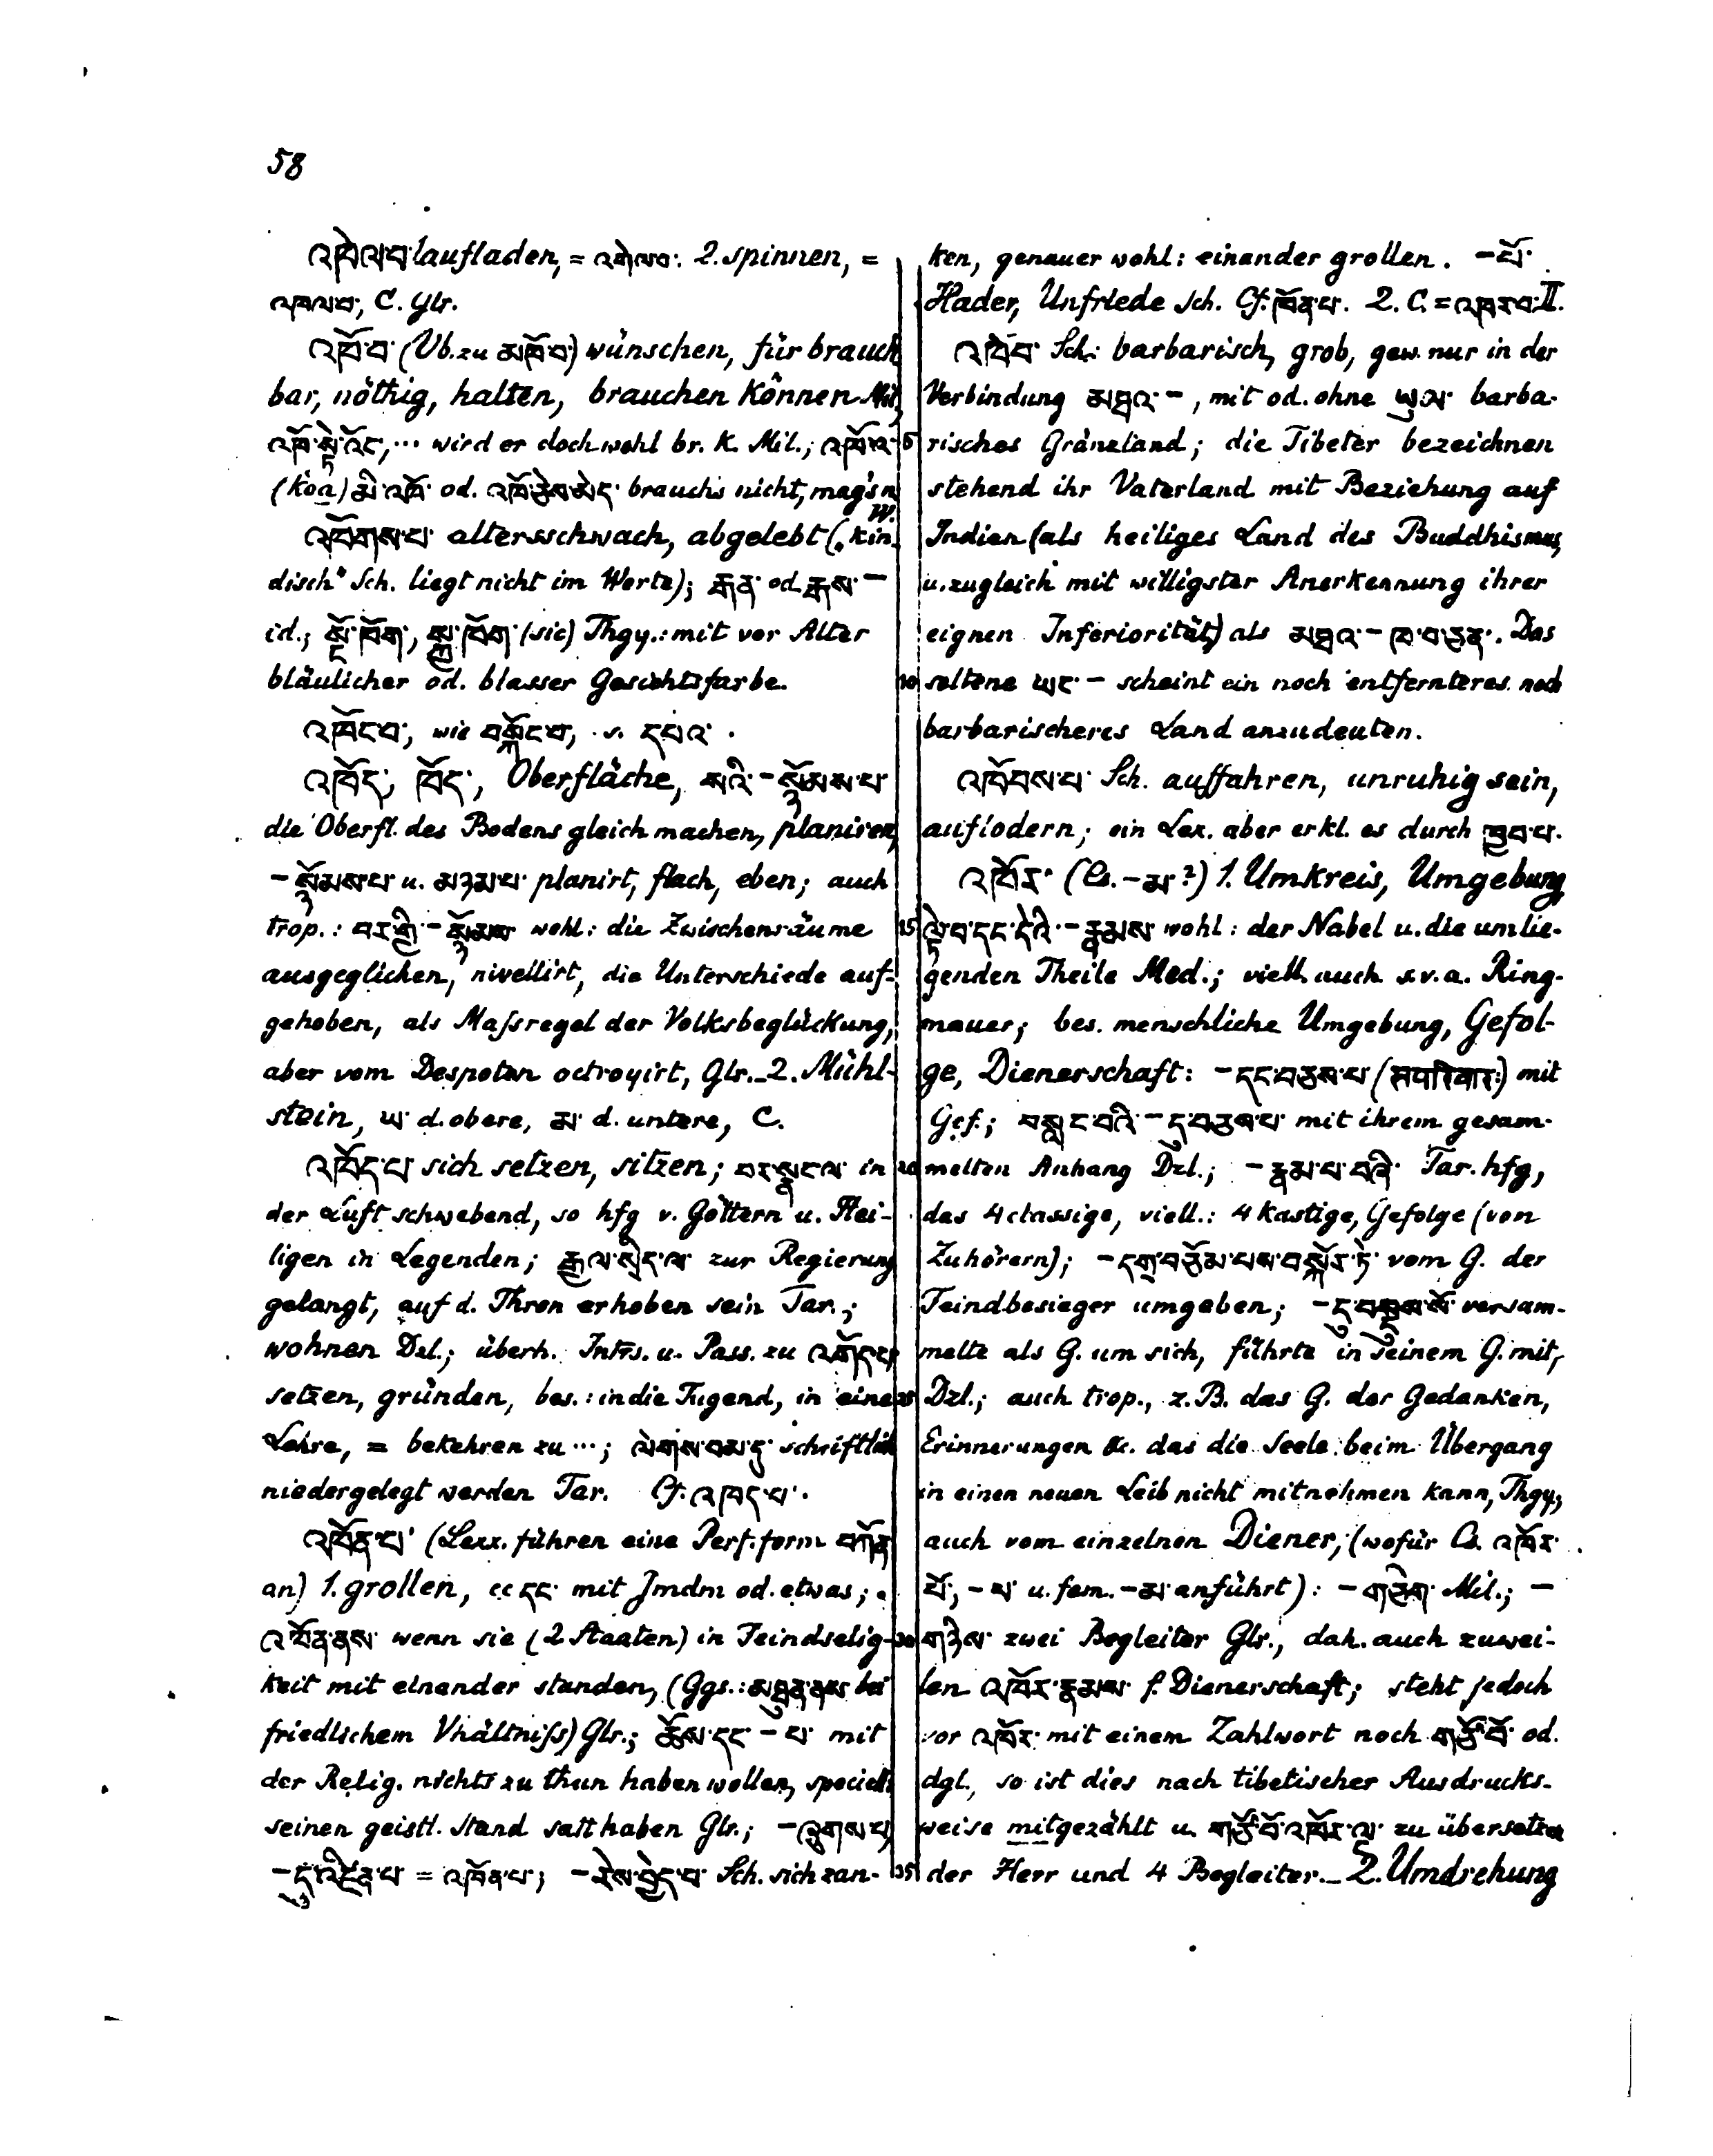 58
འཁེལ་བ་ 1 aufladen, = འགེལ་བ་. 2. spinnen, =
འཁལ་བ་, C. Glr.
འཁོ་བ་ (Vb. zu མཁོ་བ་) wünschen, für brauch
bar, nöthig, halten, brauchen können Mil
འཁོ་སྟེ་འོང་, ... wird er doch wohl br. k. Mil.; འཁོའ་
(Koa) མི་འཁོ་ od. འཁོ་ཅེས་མེད་ brauchs nicht, mag's n
W.
འཁོགས་པ་ altersschwach, abgelebt („kin
disch" Sch. liegt nicht im Worte); རྒན་ od. རྒས་ –
id.; སྔོ་ཁོག་, སྐྱ་ཁོག་ (sic) Thgy.: mit vor Alter
bläulicher od. blasser Gesichtsfarbe.
འཁོང་བ་, wie བསྐོང་བ་, s. དཔའ་ .
འཁོད་, ཁོད་, Oberfläche, སའི་ – སྙོམས་པ་
die Oberfl. des Bodens gleich machen, planiren,
– སྙོམས་པ་ u. མཉམ་པ་ planirt, flach, eben; auch
trop.: བར་གྱི་ – སྙོམས་ wohl: die Zwischenräume
ausgeglichen, nivellirt, die Unterschiede auf-
gehoben, als Maſsregel der Volksbeglückung,
aber vom Despoten octroyirt, Glr. _ 2. Mühl-
stein, ཡ་ d. obere, མ་ d. untere, C.
འཁོད་པ་ sich setzen, sitzen; བར་སྣང་ལ་ in
der Luft schwebend, so hfg v. Göttern u. Hei-
ligen in Legenden; རྒྱལ་སྲིད་ལ་ zur Regierung
gelangt, auf d. Thron erhoben sein Tar.;
wohnen Dzl.; überh. Intrs. u. Pass. zu འགོད་པ་
setzen, gründen, bes.: in die Tugend, in eine
Lehre, = bekehren zu ...; ལེགས་བམ་དུ་ schriftlich
niedergelegt werden Tar. Cf. འཁད་པ་.
འཁོན་པ་ (Lexx. führen eine Perf. form བཀོན
an) 1. grollen, cc དང་ mit Jmdm od. etwas;
འཁོན་ནས་ wenn sie (2 Staaten) in Feindselig-
keit mit einander standen, (Ggs.: མཐུན་ནས་ bei
friedlichem Vhältniſs) Glr.; ཆོས་དང་ – པ་ mit
der Relig. nichts zu thun haben wollen, speciell
seinen geistl. Stand satt haben Glr.; – ཞུགས་པ་
– དུ་འཛིན་པ་ = འཁོན་པ་; – རེས་བྱེད་པ་ Sch. sich zan-
ken, genauer wohl: einander grollen. – པོ་
Hader, Unfriede Sch. Cf. ཁོན་པ་. 2. C. = འཁར་བ་ II.
འཁོབ་ Sch.: barbarisch, grob, gew. nur in der
Verbindung མཐའ་ –, mit od. ohne ཡུལ་ barba-
5 risches Gränzland; die Tibeter bezeichnen
stehend ihr Vaterland mit Beziehung auf
Indien (als heiliges Land des Buddhismus,
u. zugleich mit willigster Anerkennung ihrer
eignen Inferiorität) als མཐའ་ – ཁ་བ་ཅན་. Das
10 seltene ཡང་ – scheint ein noch entfernteres noch
barbarischeres Land anzudeuten.
འཁོབས་པ་ Sch. auffahren, unruhig sein,
auflodern; ein Lex. aber erkl. es durch
འཁོར་ (Cs. – མ་?) 1. Umkreis, Umgebung
15 ལྟེ་བ་དང་དེའི་ – རྣམས་ wohl: der Nabel u. die umlie-
genden Theile Med.; viell. auch s. v. a. Ring-
mauer; bes. menschliche Umgebung, Gefol-
ge, Dienerschaft: – དང་བཅས་པ་ (सपरिवारः) mit
Gef.; བསྲུང་བའི་ – ད་བཅས་པ་ mit ihrem gesam-
20 melten Anhang Dzl.; – རྣམ་པ་བཞི་ Tar. hfg,
das 4 classige, viell.: 4 kastige, Gefolge (von
Zuhörern); – དགྲ་བཅོམ་པས་བསྐོར་ཏེ་ vom G. der
Feindbesieger umgeben; – དུ་བསྡུས་སོ་ versam-
melte als G. um sich, führte in seinem G. mit,
25 Dzl.; auch trop., z. B. das G. der Gedanken,
Erinnerungen &c. das die Seele beim Übergang
in einen neuen Leib nicht mitnehmen kann, Thgy.;
auch vom einzelnen Diener, (wofür Cs. འཁོར་
པོ་, – པ་ u. fem. – མ་ anführt): – གཅིག་ Mil.; –
30 གཉིས་ zwei Begleiter Glr., dah. auch zuwei-
len འཁོར་རྣམས་ f. Dienerschaft; steht jedoch
vor འཁོར་ mit einem Zahlwort noch གཙོ་བོ་ od.
dgl., so ist dies nach tibetischer Ausdrucks-
weise mitgezählt u. གཙོ་བོ་འཁོར་ལྔ་ zu übersetzen
35 der Herr und 4 Begleiter. _ 2. Umdrehung